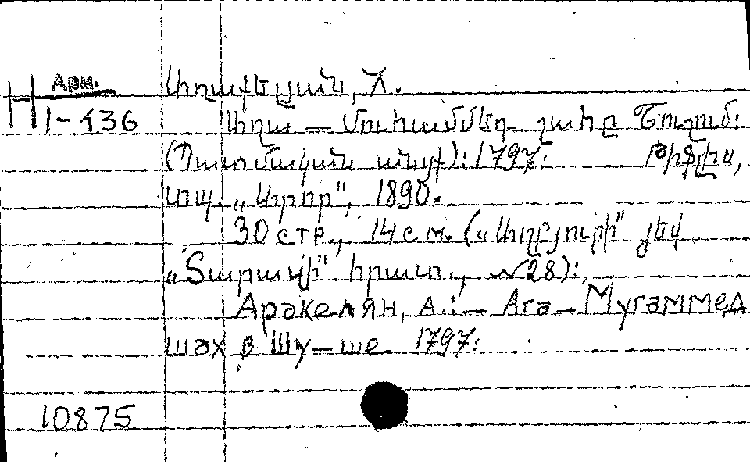 Арм.
Առաքելյան, Հ.
H 1-436
Աղա – Մուհամմեդ շահը Շուշում:
(Պատմական անցք): 1797: Թիֆլիս,
տպ. „Արոր", 1890.
30 стр., 14 с.м. („Աղբյուրի" յեվ
„Տարազի" հրատ., №28):
Аракелян, А.:– Ага–Мугаммед
шах в Шу–ше 1797:
10875